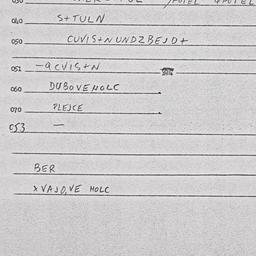 040 S+TULN
050 CUVIS+N UND ZBEJD+
051 -a CVIS+N
060 DUBOVE HOLC
070 PLEJCE
053 —
BER
X VAJD,VE HOLC